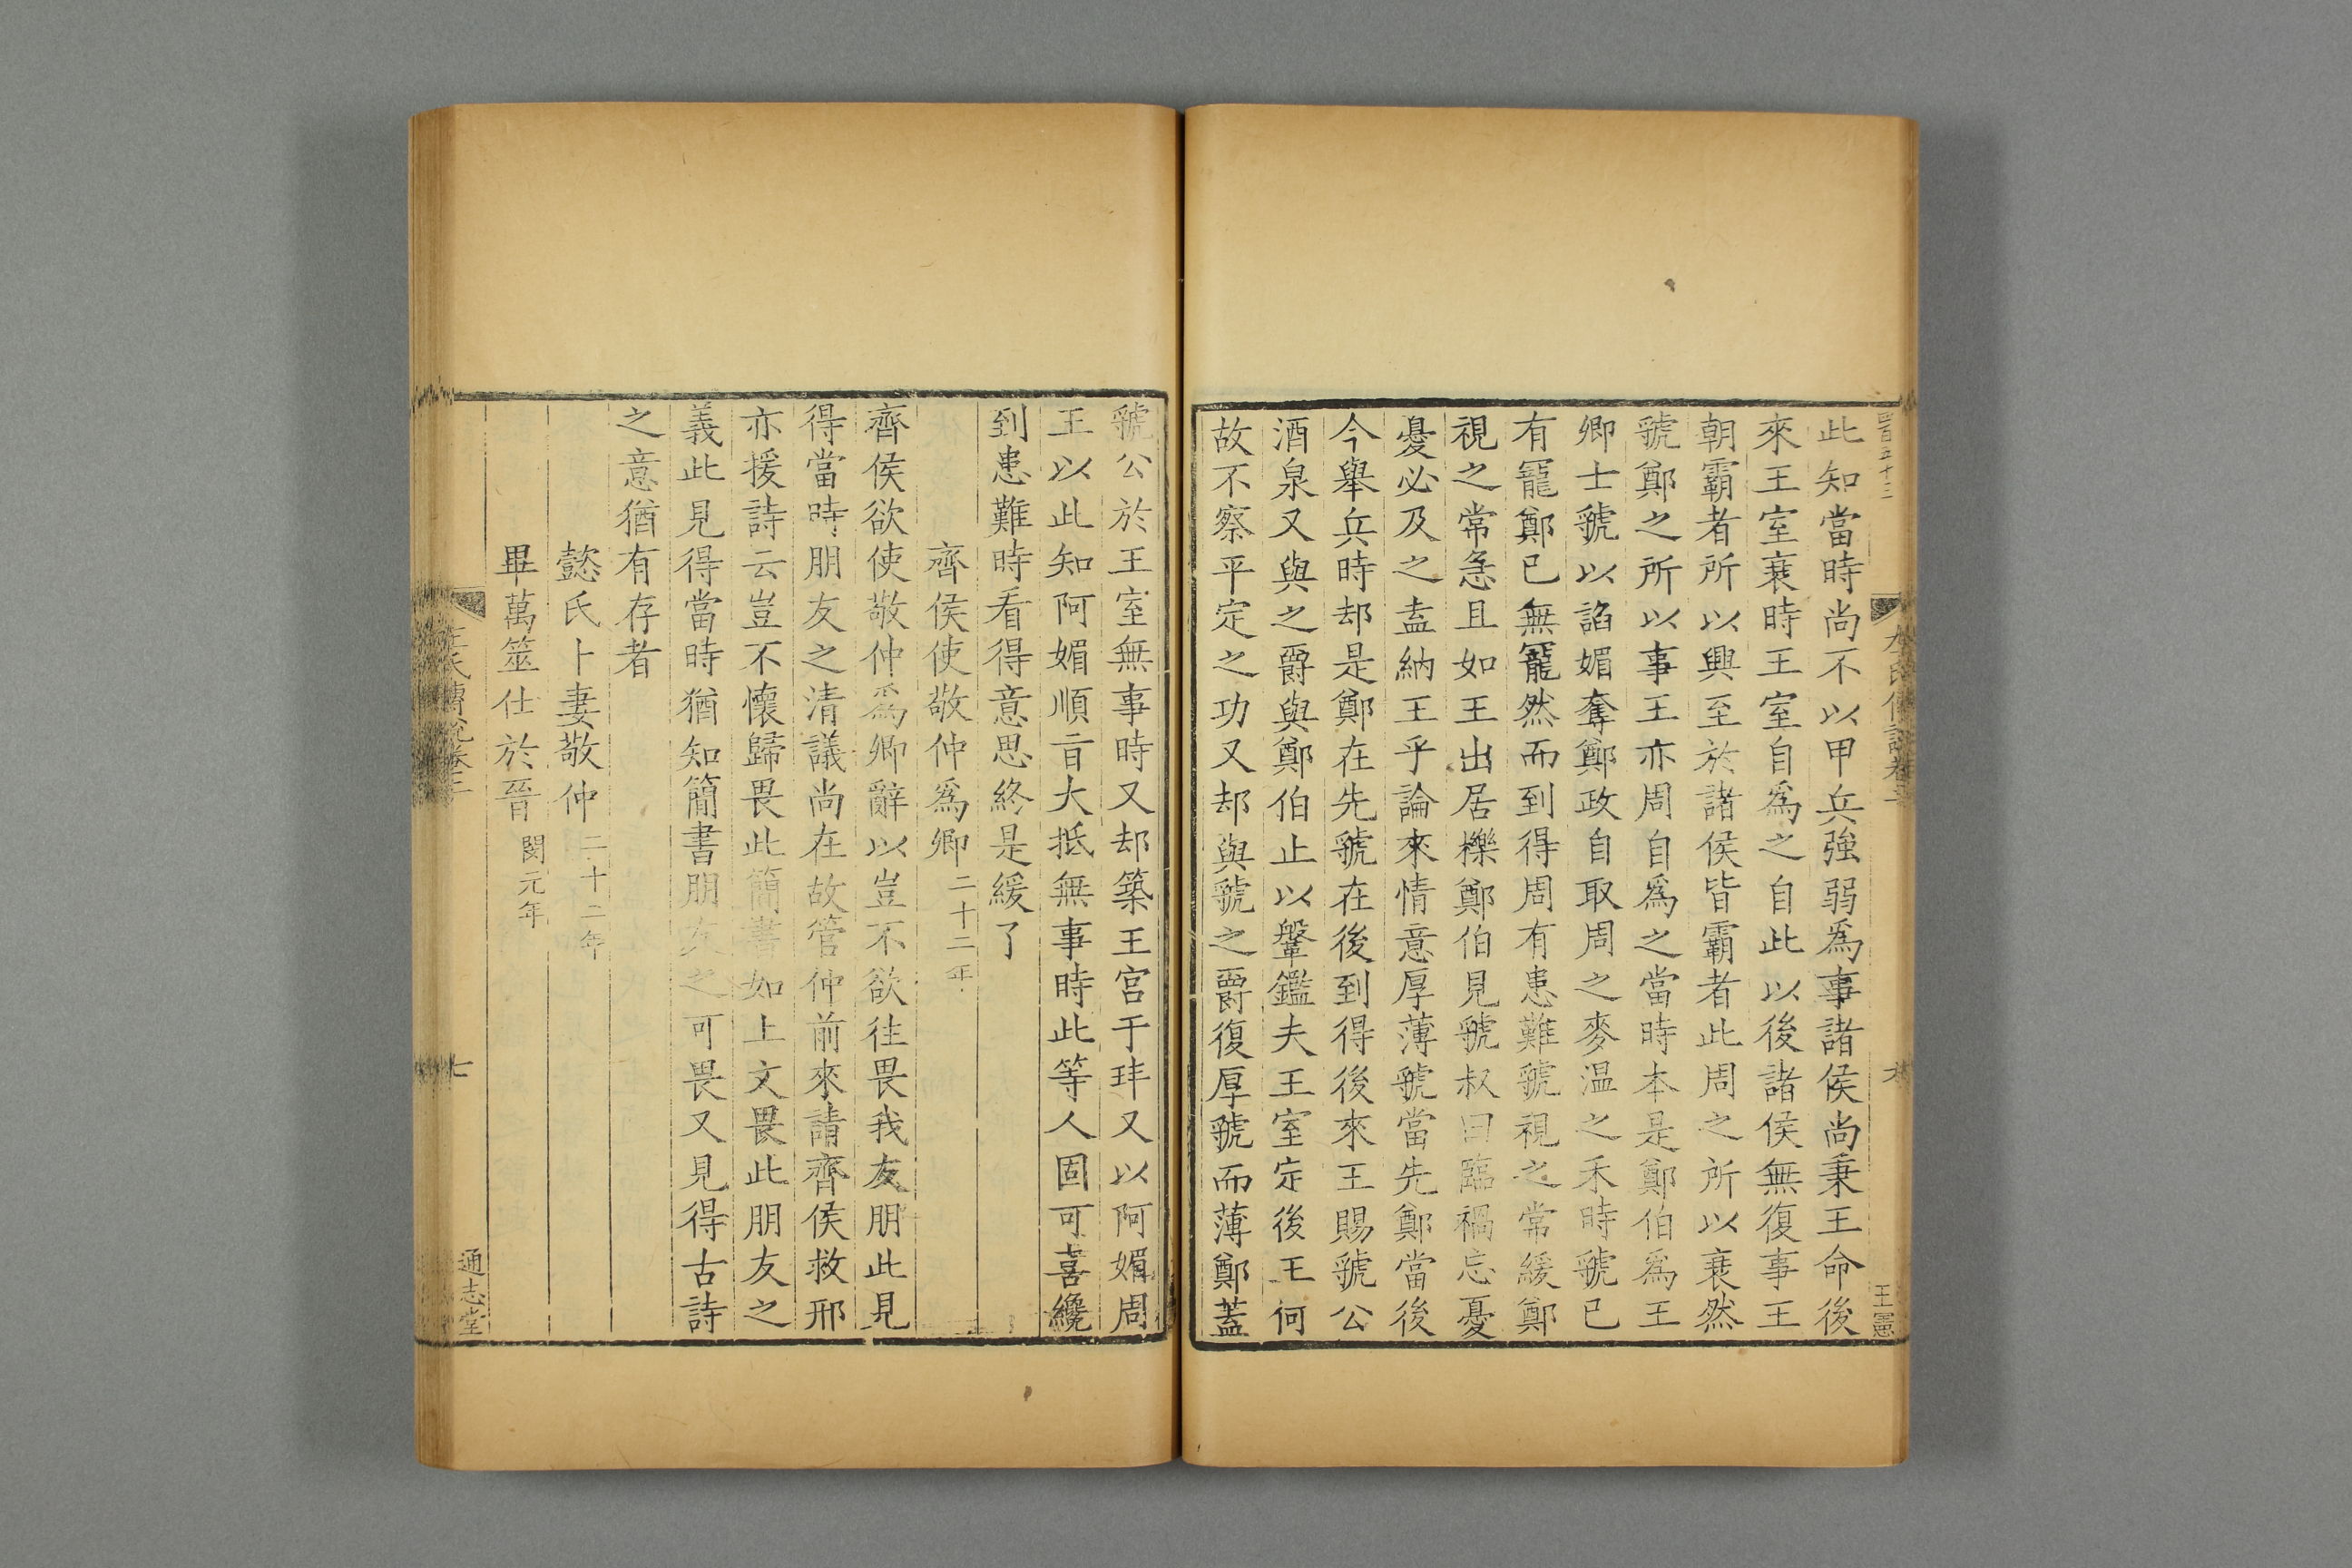 四百五十三
左氏傳說卷三
王憲
此知當時尚不以甲兵強弱為事諸侯尚秉王命後
來王室衰時王室自為之自此以後諸侯無復事王
朝霸者所以興至於諸侯皆霸者此周之所以衰然
虢鄭之所以事王亦周自為之當時本是鄭伯為王
卿士虢以諂媚奪鄭政自取周之麥温之禾時虢已
有寵鄭已無寵然而到得周有患難虢視之常緩鄭
視之常急且如王出居櫟鄭伯見虢叔曰臨禍忘憂
憂必及之盍納王乎論來情意厚薄虢當先鄭當後
今舉兵時却是鄭在先虢在後到得後來王賜虢公
酒泉又與之爵與鄭伯止以鞶鑑夫王室定後王何
故不察平定之功又却與虢之爵復厚虢而薄鄭蓋
虢公於王室無事時又却築王宮于玤又以阿媚周
王以此知阿媚順旨大抵無事時此等人固可喜纔
到患難時看得意思終是緩了
齊侯使敬仲為卿二十二年
齊侯欲使敬仲為卿辭以豈不欲往畏我友朋此見
得當時朋友之清議尚在故管仲前來請齊侯救邢
亦援詩云豈不懷歸畏此簡書如上文畏此朋友之
義此見得當時猶知簡書朋友之可畏又見得古詩
之意猶有存者
懿氏卜妻敬仲二十二年
畢萬筮仕於晉閔元年
左氏傳說卷三
七
通志堂